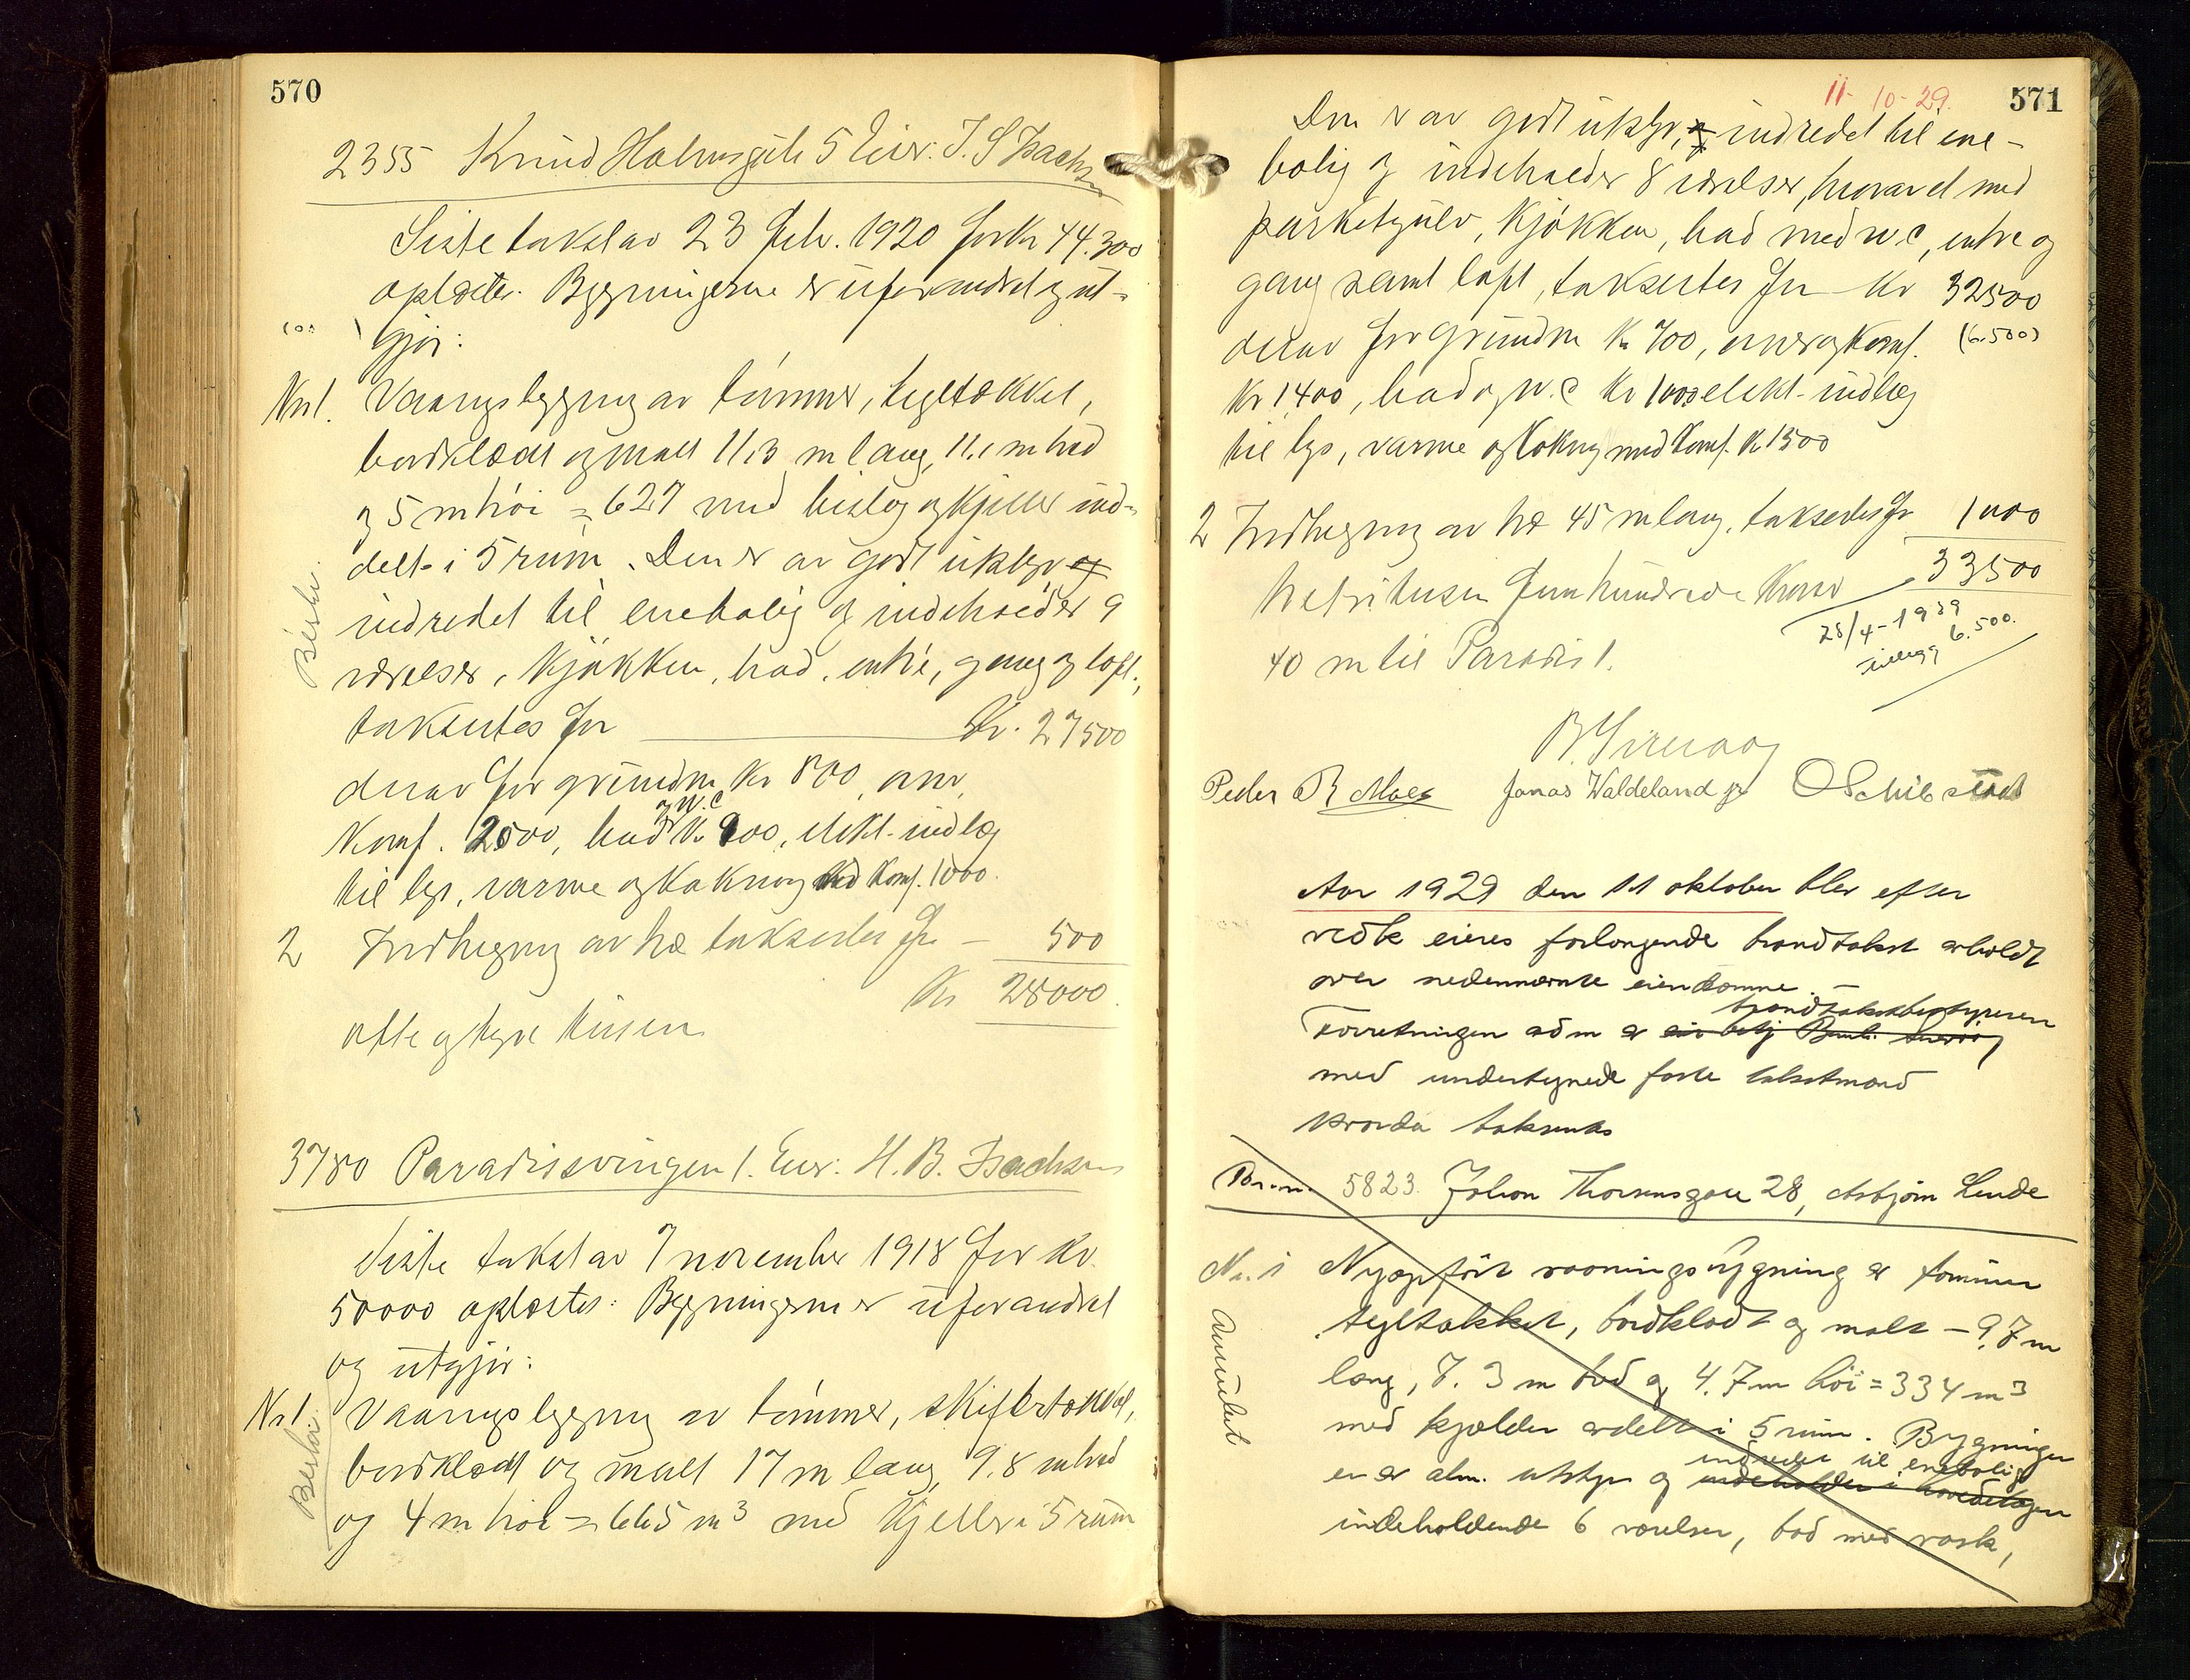 570
2355 Knud Holmsgate 5 Eier: J. S Isachsen
Siste takst av 23 febr. 1920 for kr 44.300
oplæstes. Bygningerne er uforandret og ut-
gjør:
No 1. Vaaningsbygning av tømmer, tegltækket,
bordklædt og malt 11,3 m lang, 11,1 m bred
og 5 m høi = 627 med bislag og kjeller ind-
delt i 5 rum. Den er av godt utstyr og
indredet til enebolig og indeholder 9
værelser, kjøkken, bad, entré, gang og loft;
Besta.
takseres for Kr. 27500
derav for grundm kr 800, ovner,
komf. 2500, bad og W.C kr 900, elekt. indlæg
til lys, varme og kokning med komf. 1000.
2 Indhegning av træ takseres for - 500
Kr 28000.
otte og tyve tusen
3780 Paradissvingen 1. Eier: H. B. Isachsen
Siste takst av 7 november 1918 for kr.
50000 oplæstes: Bygningerne er uforandret
og utgjør:
No 1. Vaaningsbygning av tømmer, skifertækket,
bordklædt og malt 17 m lang, 9.8 m bred
og 4 m høi = 665 m3 med kjeller i 5 rum
Besta.
11-10-29. 571
Den er av godt utstyr, og indredet til ene-
bolig og indeholder 8 værelser, hvorav et med
parketgulv, kjøkken, bad med w.c, entre og
gang samt loft, takseres for kr 32500
derav for grundm kr 700, ovner og komf. (6.500)
kr 1400, bad og W.C kr 1000 elekt. indlæg
til lys, varme og kokning med komf. kr 1500
2 Indhegning av træ 45 m lang, takseres for 1000
33500
tretritusen femhundrede kroner
28/4-1939
tillegg 6.500.
40 m til Paradis 1.
Peder R Moes Jonas Waldeland jr O Schibstad
Aar 1929 den 11 oktober blev efter
vedk eieres forlangende brandtakst avholdt
over nedennævnte eiendomme.
brandtakstbestyreren
Forretningen adm av
med undertegnede faste takstmænd
hvorda takseredes
5823. Johan Thorsensgate 28, Asbjørn Lende
No. 1 Nyopført vaaningsbygning av tømmer
tegltækket, bordklædt og malt - 9.7 m
lang, 7.3 m bred og 4.7 m høi = 334 m3
med kjelder avdelt i 5 rum. Bygningen
indredet til enebolig
er av alm. utstyr og indeholder i hovedetagen
indeholdende 6 værelser, bad med vask,
Annulert